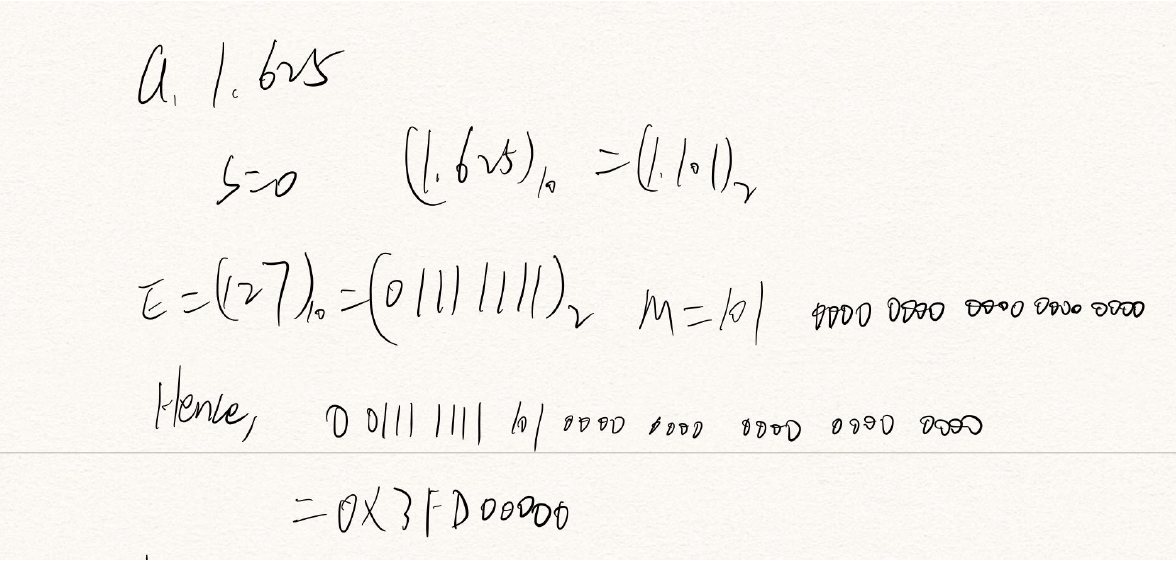 a. 1.625
S=0 (1.625)₁₀ =(1.101)₂
E=(127)₁₀=(0111 1111)₂ M=101 0000 0000 0000 0000 0000
Hence, 0 0111 1111 101 0000 0000 0000 0000 0000
=0X3FD00000